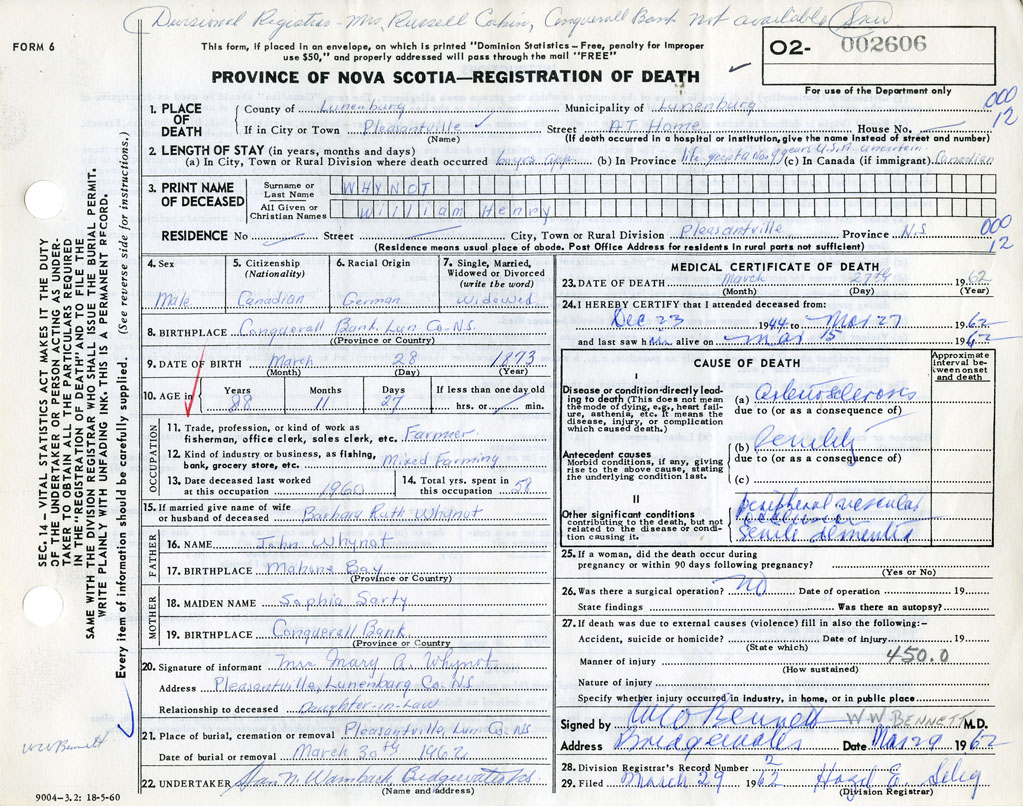 Divisional Registrar - Mrs. Russell Corkin, Conquerall Bank not available
FORM 6
This form, if placed in an envelope, on which is printed "Dominion Statistics – Free, penalty for improper
use $50," and properly addressed will pass through the mail "FREE"
O2- 002606
PROVINCE OF NOVA SCOTIA—REGISTRATION OF DEATH
For use of the Department only
1. PLACE OF DEATH
County of Lunenburg Municipality of Lunenburg
000
12
If in City or Town Pleasantville Street AT Home House No.
(Name) (If death occurred in a hospital or institution, give the name instead of street and number)
2. LENGTH OF STAY (in years, months and days)
(a) In City, Town or Rural Division where death occurred (b) In Province life (c) In Canada (if immigrant) Canadian
3. PRINT NAME OF DECEASED
Surname or Last Name WHYNOT
All Given or Christian Names William Henry
000
12
RESIDENCE No Street City, Town or Rural Division Pleasantville Province N.S
(Residence means usual place of abode. Post Office Address for residents in rural parts not sufficient)
4. Sex
Male
5. Citizenship (Nationality)
Canadian
6. Racial Origin
German
7. Single, Married, Widowed or Divorced (write the word)
Widowed
8. BIRTHPLACE Conquerall Bank, Lun Co. N.S.
(Province or Country)
9. DATE OF BIRTH March 28 1873
(Month) (Day) (Year)
10. AGE in
Years Months Days If less than one day old
88 11 27 hrs. or min.
OCCUPATION
11. Trade, profession, or kind of work as
fisherman, office clerk, sales clerk, etc. Farmer
12. Kind of industry or business, as fishing,
bank, grocery store, etc. Mixed Farming
13. Date deceased last worked
at this occupation 1960
14. Total yrs. spent in
this occupation 58
15. If married give name of wife
or husband of deceased Barbara Ruth Whynot
FATHER
16. NAME John Whynot
17. BIRTHPLACE Mahone Bay
(Province or Country)
MOTHER
18. MAIDEN NAME Sophia Sarty
19. BIRTHPLACE Conquerall Bank
(Province or Country
20. Signature of informant Mrs Mary A. Whynot
Address Pleasantville, Lunenburg Co. N.S
Relationship to deceased Daughter-in-law
21. Place of burial, cremation or removal Pleasantville, Lun. Co. N.S
Date of burial or removal March 30th 1962
22. UNDERTAKER Wambach Bridgewater N.S.
(Name and address)
9004-3.2: 18-5-60
MEDICAL CERTIFICATE OF DEATH
23. DATE OF DEATH March 27th 1962
(Month) (Day) (Year)
24. I HEREBY CERTIFY that I attended deceased from:
Dec 23 1944 to Mar 27 1962
and last saw him alive on Mar 15 1962
CAUSE OF DEATH
Approximate interval between onset and death
I
Disease or condition directly leading to death (This does not mean
the mode of dying, e.g., heart failure, asthenia, etc. It means the
disease, injury, or complication
which caused death.)
(a) Arteriosclerosis
due to (or as a consequence of)
(b) Senility
due to (or as a consequence of)
(c)
Antecedent causes
Morbid conditions, if any, giving
rise to the above cause, stating
the underlying condition last.
II
Other significant conditions
contributing to the death, but not
related to the disease or condition causing it.
peripheral vascular
occlusion
senile dementia
25. If a woman, did the death occur during
pregnancy or within 90 days following pregnancy?
(Yes or No)
26. Was there a surgical operation? No Date of operation 19
State findings Was there an autopsy?
27. If death was due to external causes (violence) fill in also the following:–
Accident, suicide or homicide? Date of injury 19
(State which)
Manner of injury 450.0
(How sustained)
Nature of injury
Specify whether injury occurred in Industry, in home, or in public place
Signed by W W Bennett W W BENNETT M.D.
Address Bridgewater Date Mar 29 1962
28. Division Registrar's Record Number 2
29. Filed March 29 1962 Hazel E. Selig
(Division Registrar)
SEC. 14 – VITAL STATISTICS ACT MAKES IT THE DUTY
OF THE UNDERTAKER OR PERSON ACTING AS UNDER-
TAKER TO OBTAIN ALL THE PARTICULARS REQUIRED
IN THE "REGISTRATION OF DEATH" AND TO FILE THE
SAME WITH THE DIVISION REGISTRAR WHO SHALL ISSUE THE BURIAL PERMIT.
WRITE PLAINLY WITH UNFADING INK. THIS IS A PERMANENT RECORD.
Every item of information should be carefully supplied. (See reverse side for instructions.)
WW Bennett